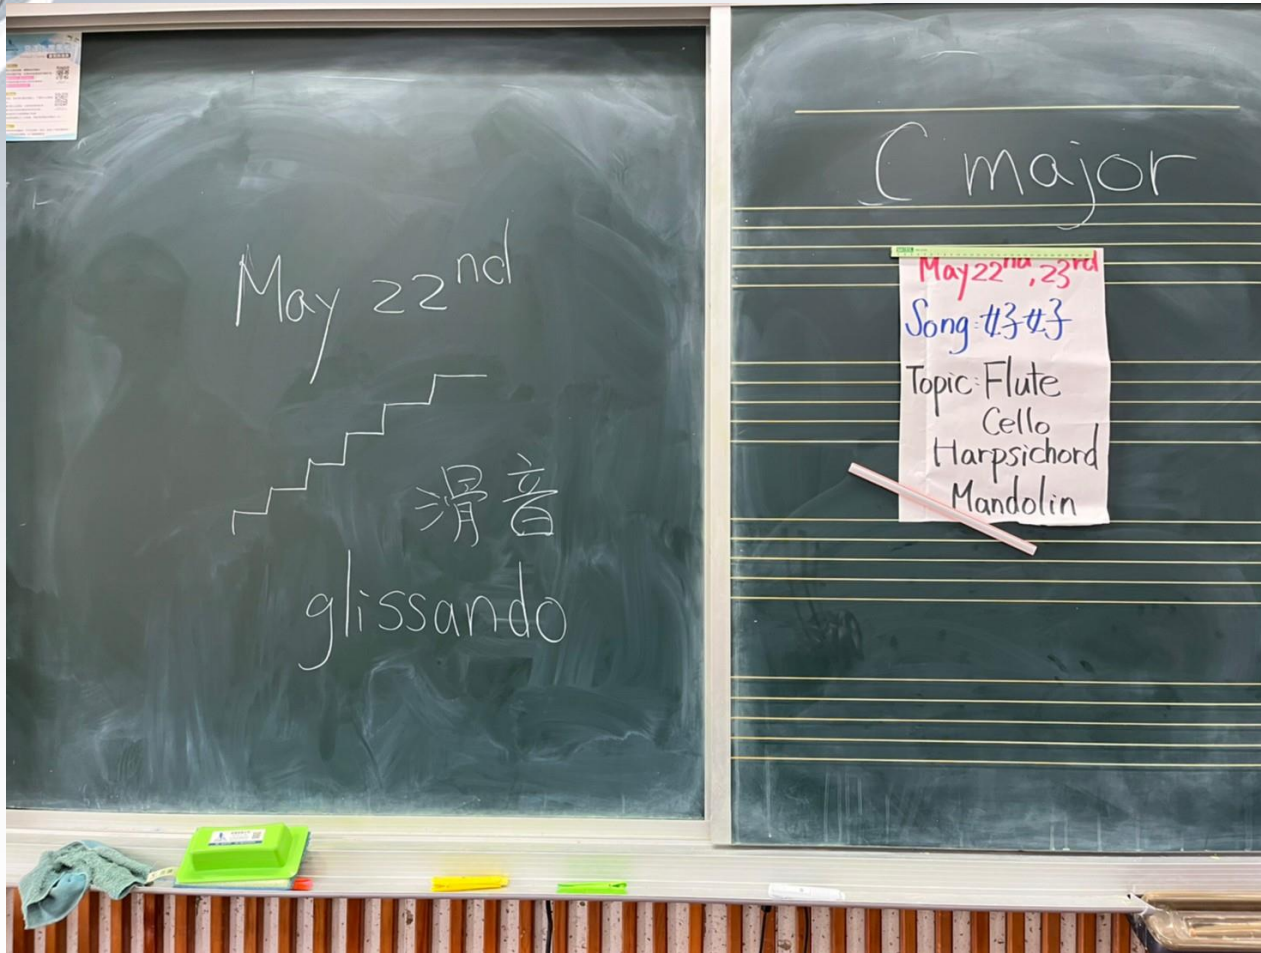 May 22nd
滑音
glissando
C major
May 22nd, 23rd
Song: 好好
Topic: Flute
Cello
Harpsichord
Mandolin